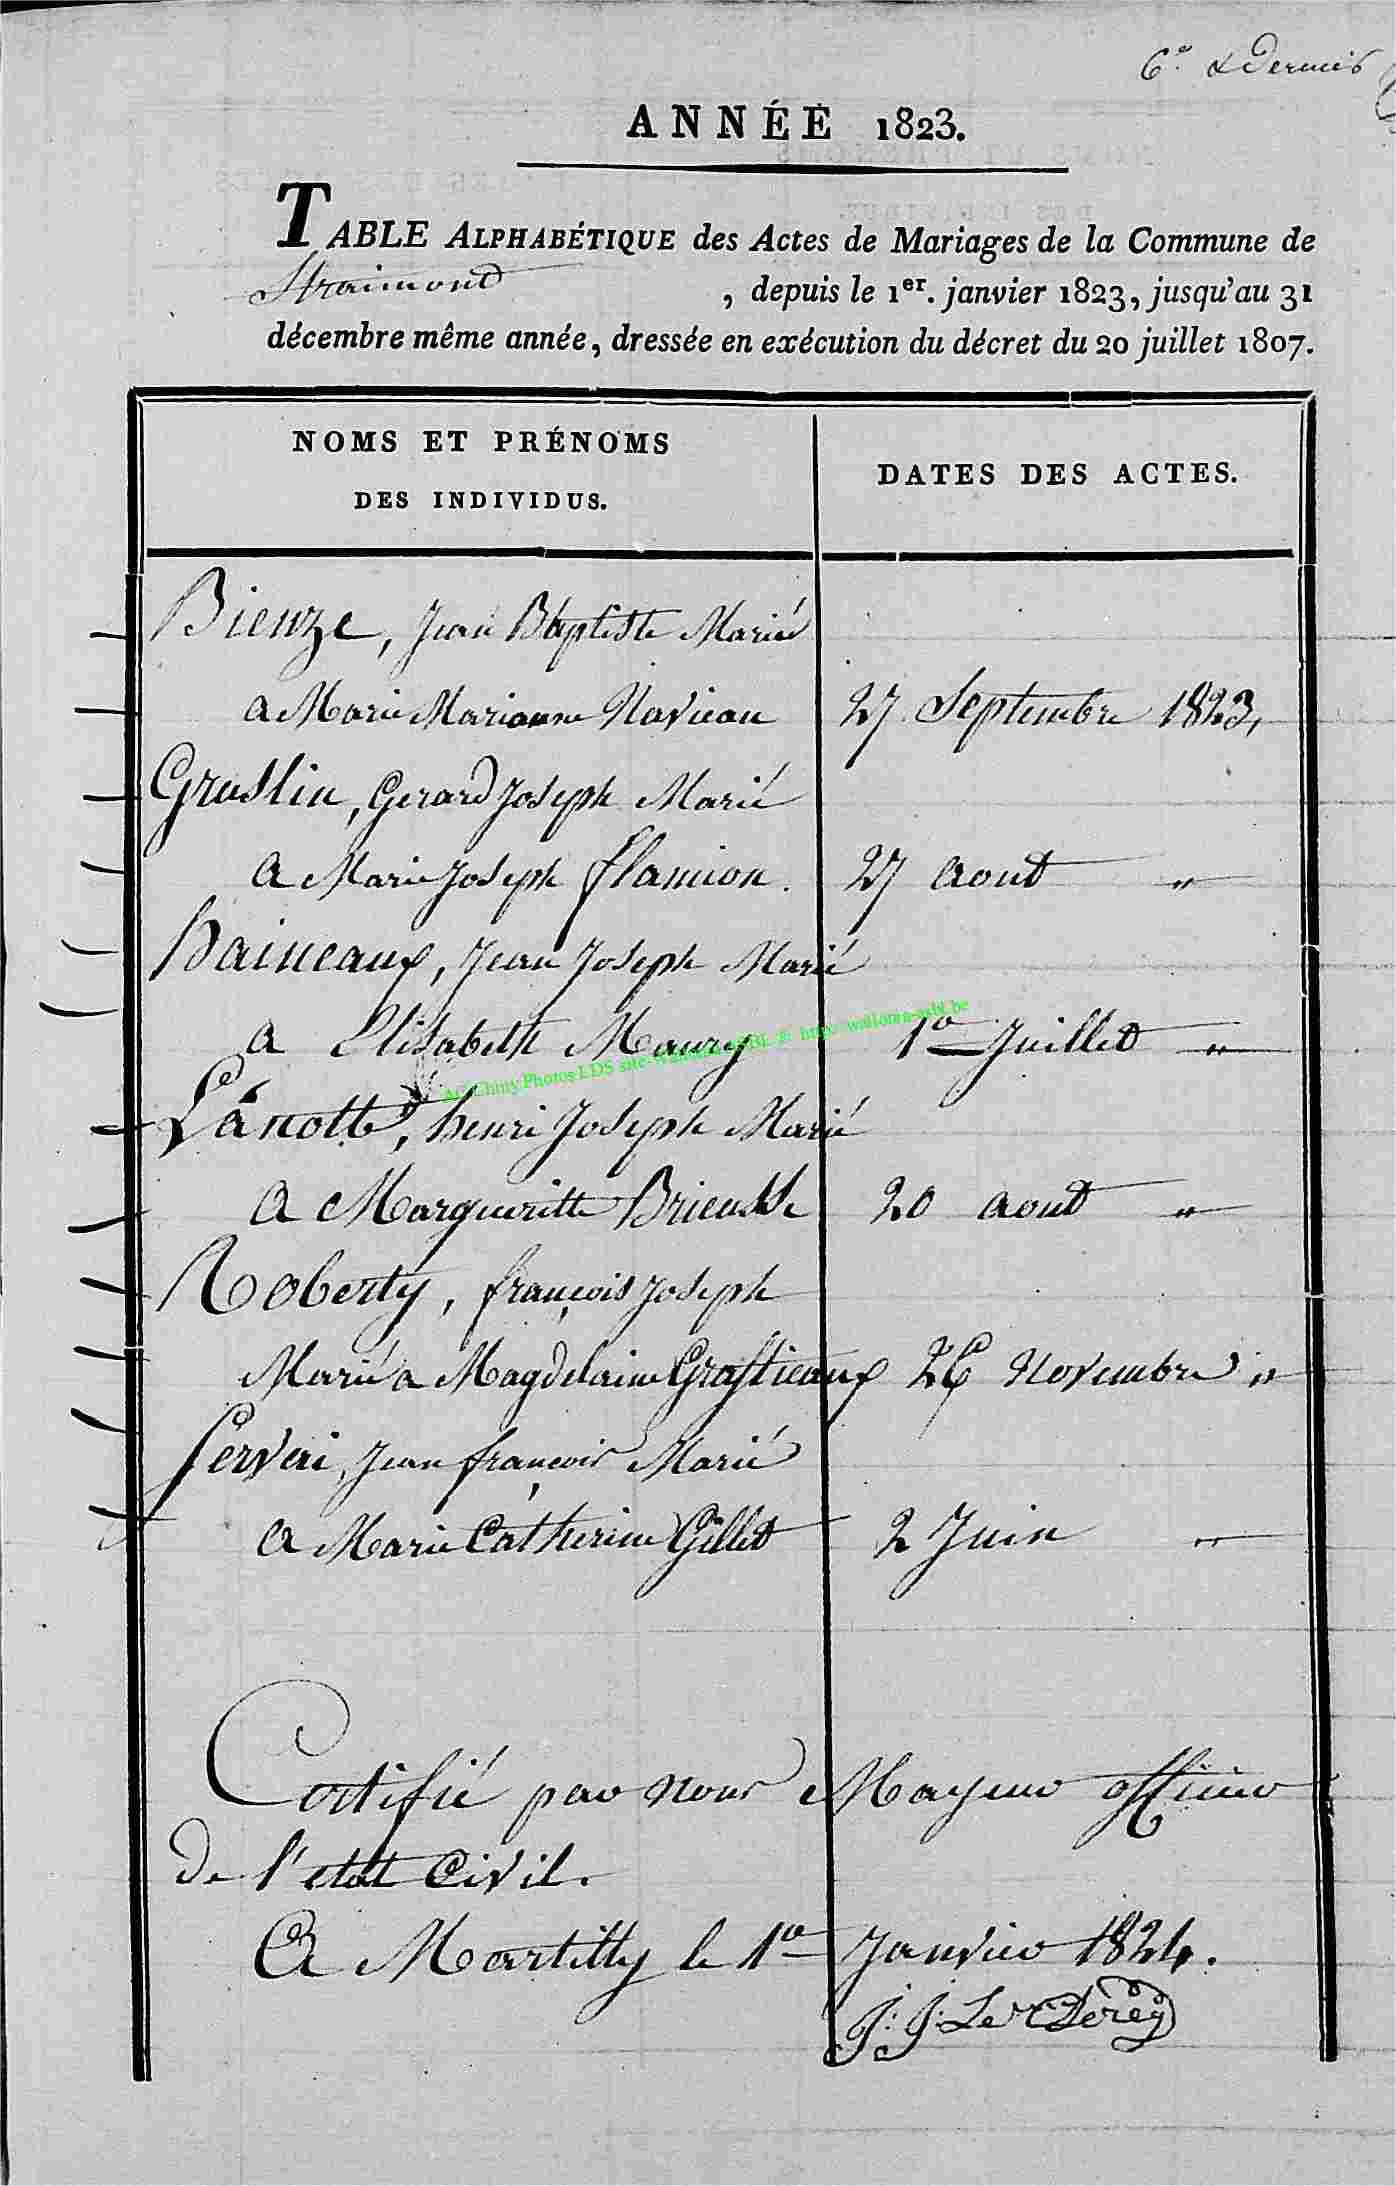 6.e & Dernier
ANNÉE 1823.
TABLE ALPHABÉTIQUE des Actes de Mariages de la Commune de
Straimont , depuis le 1er. janvier 1823, jusqu'au 31
décembre même année, dressée en exécution du décret du 20 juillet 1807.
NOMS ET PRÉNOMS
DES INDIVIDUS.
DATES DES ACTES.
Bieuze, Jean Baptiste Marié
a Marie Marianne Navieau 27 Septembre 1823,
Gruslin, Gerard Joseph Marié
a Marie Joseph flamion. 27 aout "
Haineaux, Jean Joseph Marié
a Elisabeth Maury 1er Juillet "
Lanotte, henri Joseph Marié
a Margueritte Brieusse 20 aout "
Roberty, françois Joseph
Marié a Magdelaine Grastieaux 26 Novembre "
Servai, Jean françois Marié
a Marie Catherine Gillet 2 Juin "
Certifié par nous Mayeur officier
de l'etat Civil.
A Martilly le 1er Janvier 1824.
J: J: Le Clerey